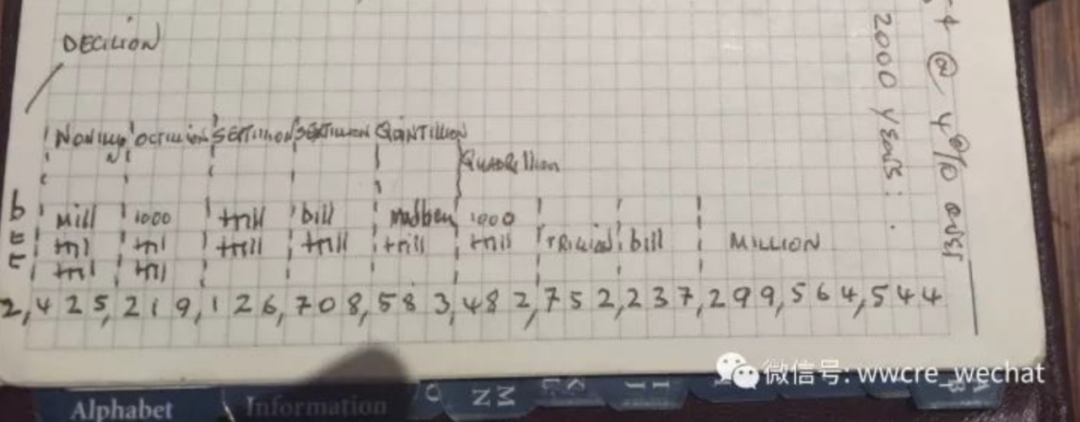 DECILION
OCTILLION SEPTILLION SEXTILLION QUINTILLION
QUADRILLION
b Mill 1000 trill bill 1000
trill trill trill trill trill trill TRILLION bill MILLION
trill trill
2,425,219,126,708,583,482,752,237,299,564,544
@ 4% over
2000 years:
微信号: wwcre_wechat
Alphabet
Information
O
MN
KL
IJ